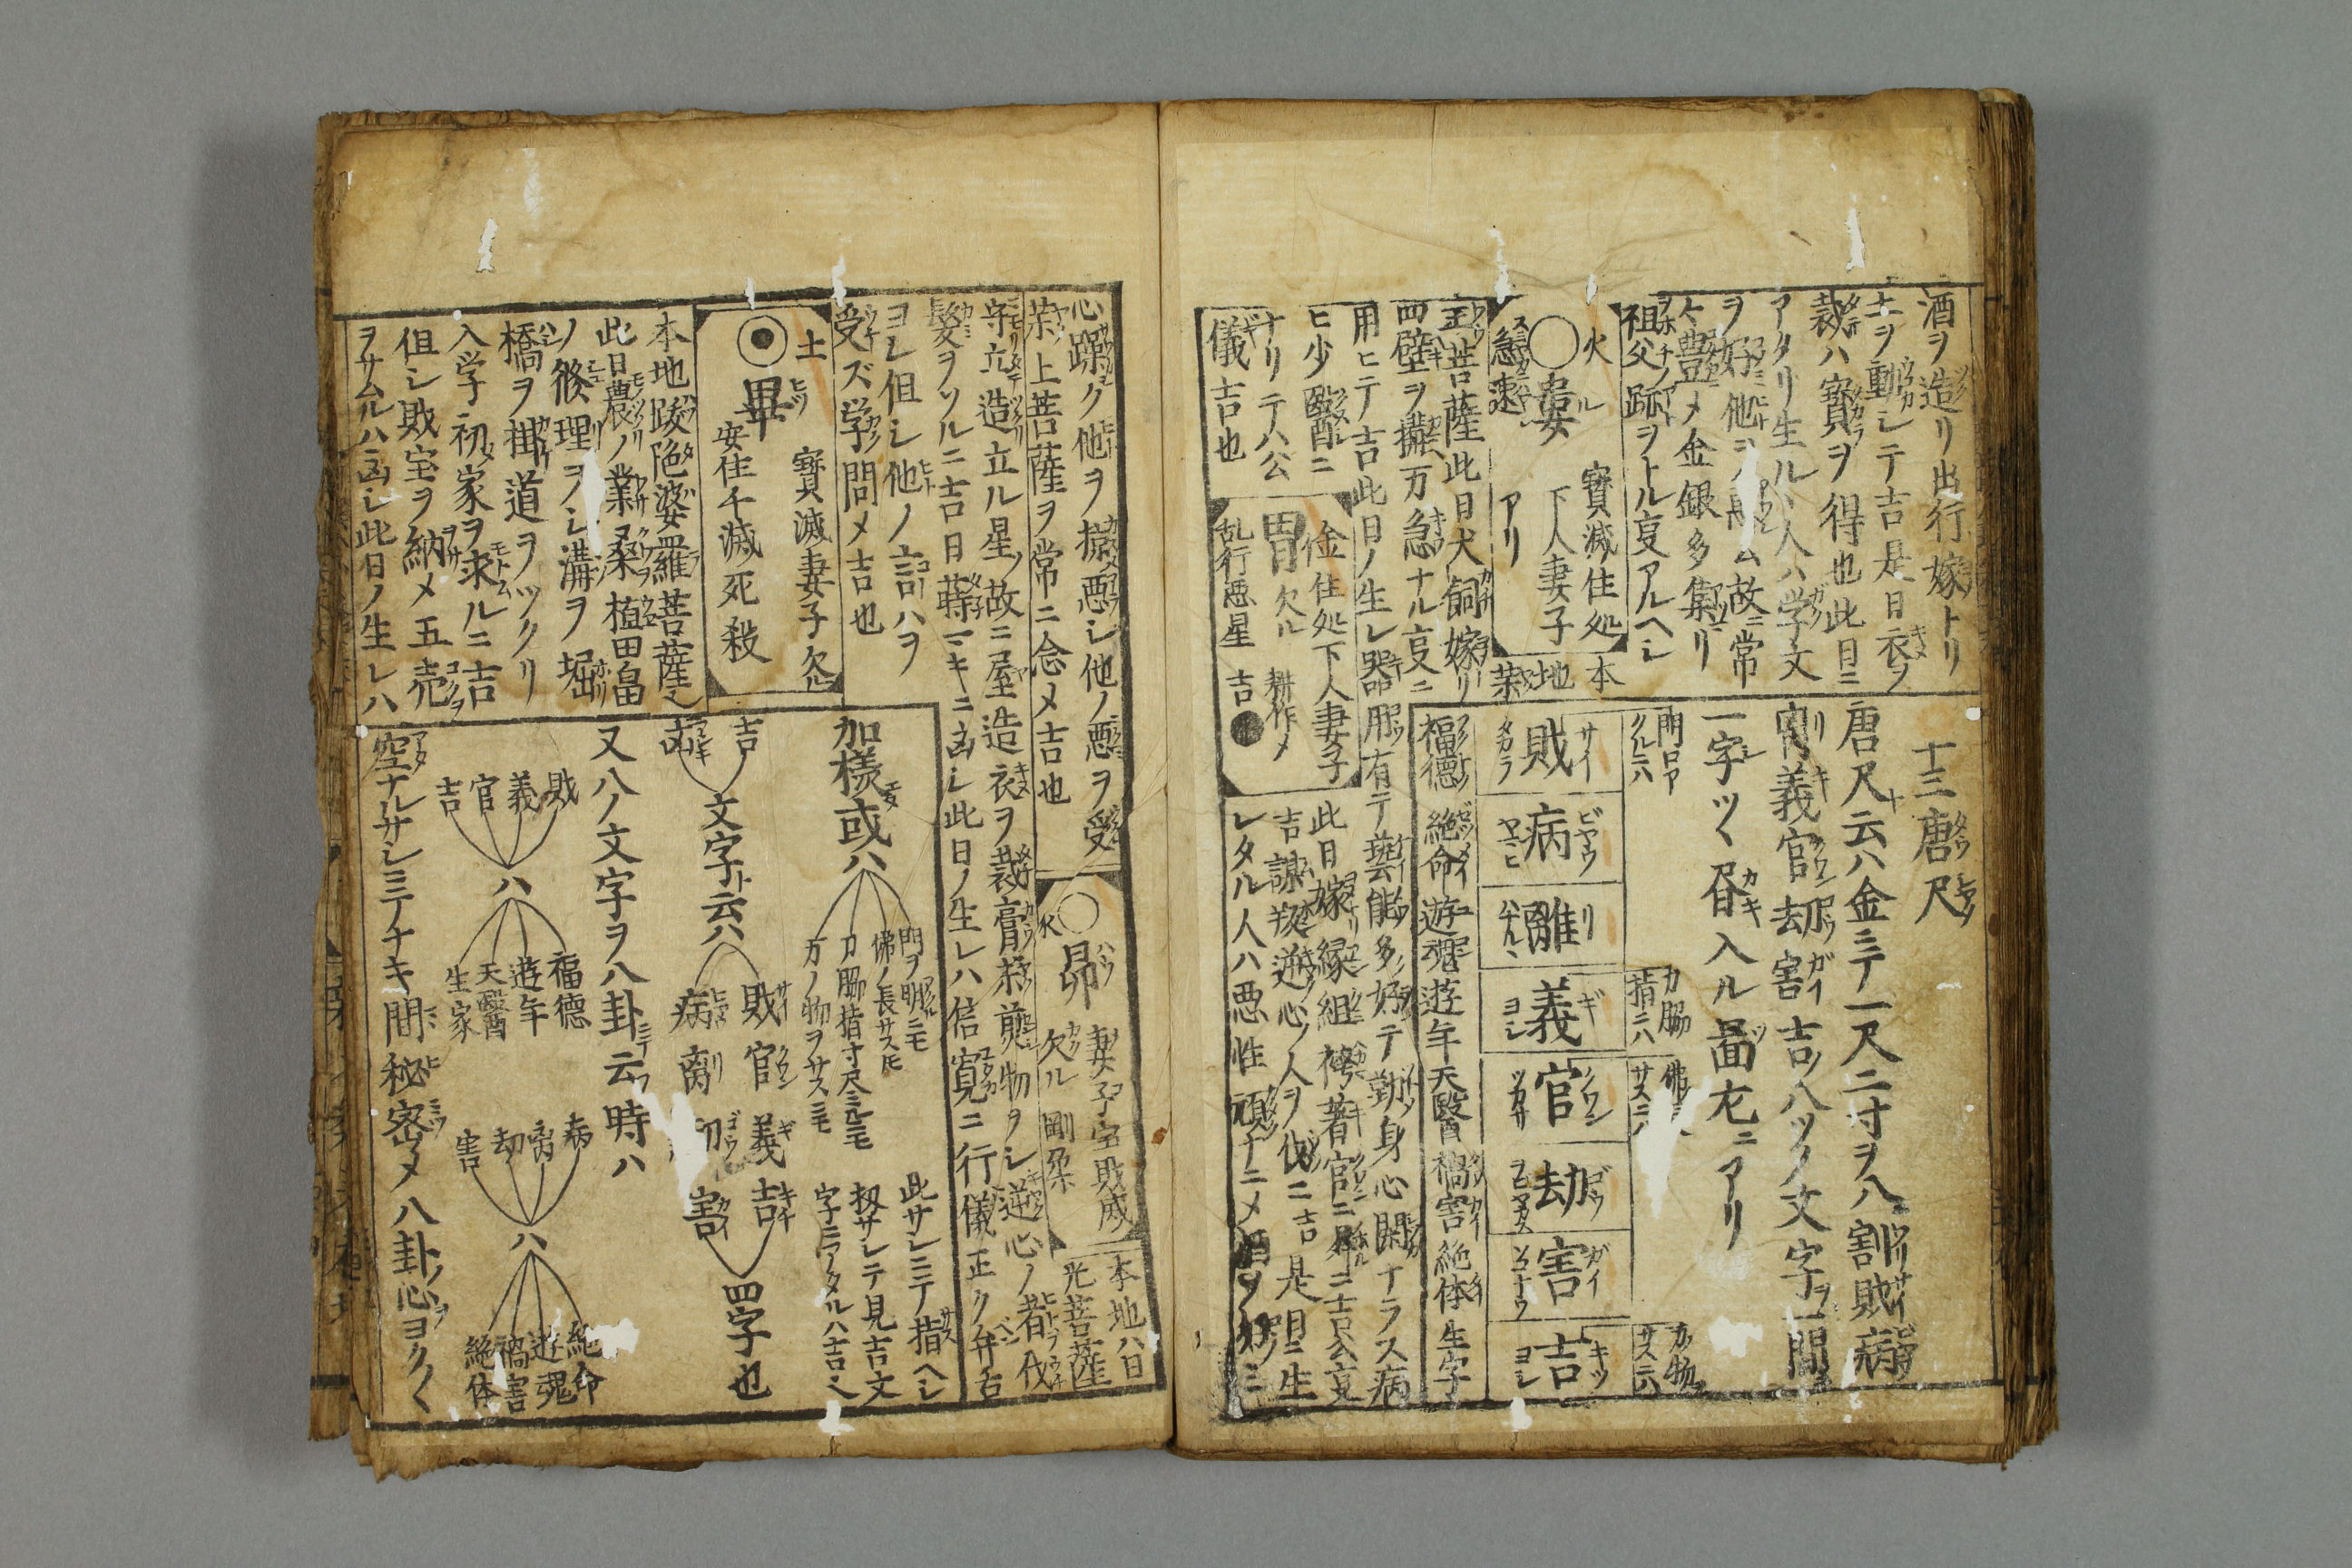 酒ヲ造リ出行嫁トリ
土ヲ動シテ吉是日衣ヲ
裁ハ寳ヲ得也此日ニ
アタリ生ルヽ人ハ学文
ヲ好他ヲ
故ニ常
ケ豊メ金銀多集リ
祖父跡ヲトル㕝アルヘシ
火
婁
急速
寳滅住処
下人妻子
アリ
本地
菩薩此日犬飼嫁リ
四壁ヲ攤万急ナル㕝ニ
用ヒテ吉此日ノ生レ器用有テ芸能多好テ勤身心閑ナラス病
ヒ少醫ニ
ナリテハ公
儀吉也
胃
金住処下人妻子
欠ル 耕作メ
乱行悪星 吉
此日嫁縁組裨著官ニ昇ニ吉公㕝
吉謙叛逆心ノ人ヲ伐ニ吉是日ニ生
レタル人ハ悪性頑ナニメ酒ヲ好ミ
十三唐尺
唐尺云ハ金ニテ一尺二寸ヲ八割賊病
離義官劫害吉ノ八ツノ文字ヲ一間
一字ツヽ昼入ル啚左ニアリ
門口ア
クルニハ
刀脇
指ニハ
佛
サスニハ
カノ物
サス云
財 サイ タカラ
病 ビヤウ ヤマヒ
離 リ ハナルヽ
義 ギ ヨシ
官 クワン ツカサ
劫 ゴウ
害 ガイ ソコナウ
吉 キツ ヨシ
福徳 絶命 遊魂 遊年 天醫 禍害 絶体 生家
心躁ク他ヲ掠悪シ他ノ悪ヲ受
水
昴
妻子宝敗滅
欠ル 剛柔
本地八日
光菩薩
薬上菩薩ヲ常ニ念メ吉也
守立造立ル星ノ故ニ屋造衣ヲ裁膏薬煎物ヲシ逆心ノ者伐
髪ヲソルニ吉日蒔マキニ凶シ此日ノ生レハ信寛ニ行儀正ク弁舌
ヨシ但シ他ノ言ハヲ
受ズ学問メ吉也
土
畢
寳滅妻子欠ル
安住千滅死殺
本地跋陁婆羅菩薩也
此日農ノ業又桑植田畠
ノ修理ヲシ溝ヲ堀
橋ヲ掛道ヲツクリ
入学初家ヲ求ルニ吉
但シ敗宝ヲ納メ五売
ヲサムルハ凶シ此日ノ生レハ
加様或ハ
門ヲ明ニモ
佛ノ長サスニモ
刀脇指寸尽ニモ
万ノ物ヲサスニモ
此サシニテ指ヘシ
扨サシテ見吉文
字ニアタルハ吉シ
吉
凶
文字ト云ハ
財 官 義 吉
病 离 劫 害
四字也
又八ノ文字ヲ八卦云時ハ
財 義 官 吉
ハ
福徳 遊年 天醫 生家
病 离 劫 害
ハ
絶命 遊魂 禍害 絶体
空ナルサシニテナキ間秘密メ八卦ノ心ヨクヽ